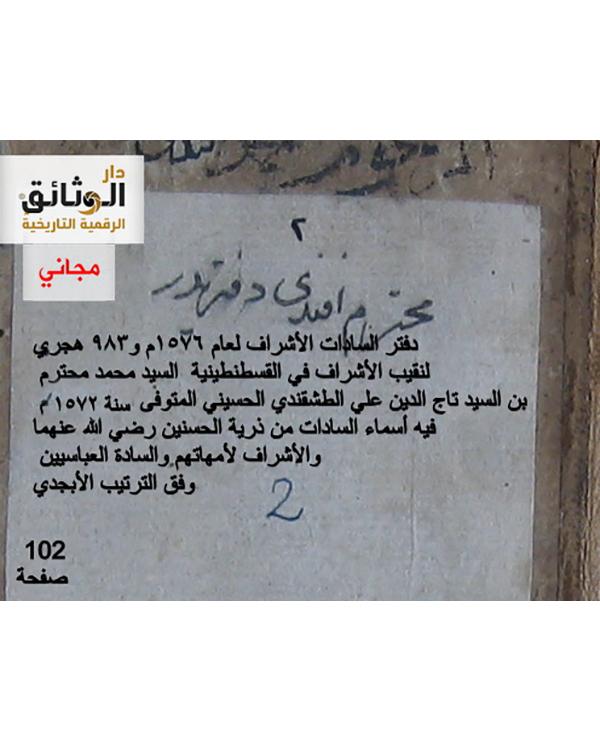 دار
الوثائق
الرقمية التاريخية
مجاني
٢
محترم افندى دفتريدر
دفتر السادات الأشراف لعام ١٥٧٦م و٩٨٣ هجري
لنقيب الأشراف في القسطنطينية السيد محمد محترم
بن السيد تاج الدين علي الطشقندي الحسيني المتوفى سنة ١٥٧٢م
فيه أسماء السادات من ذرية الحسنين رضي الله عنهما
والأشراف لأمهاتهم والسادة العباسيين
وفق الترتيب الأبجدي
2
102
صفحة